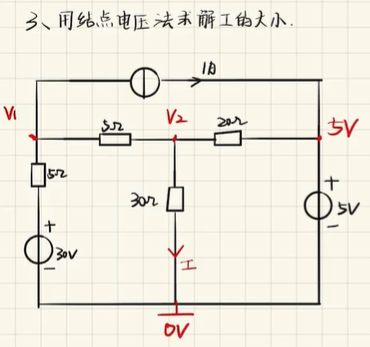 3、用结点电压法求解I的大小.
1A
V1
5Ω
V2
20Ω
5V
5Ω
30Ω
+
5V
-
+
30V
-
I
0V